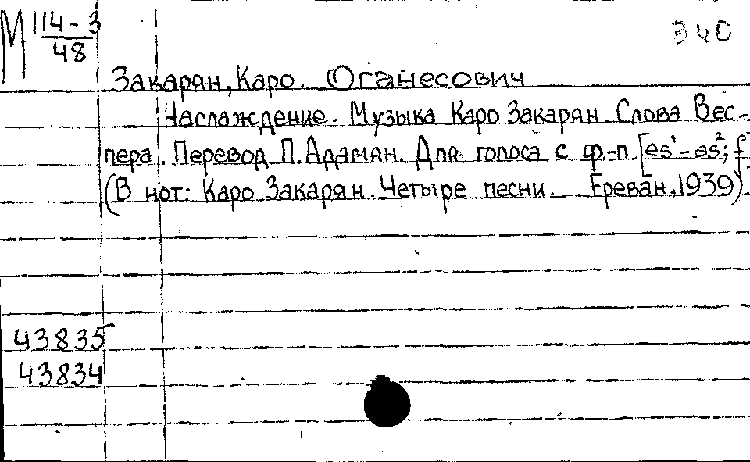 М 114-3
48
340
Закарян, Каро. Оганесович
Наслаждение. Музыка Каро Закарян. Слова Вес-
пера. Перевод П. Адамян. Для голоса с ф.-п. [es¹-as²; f
(В нот: Каро Закарян. Четыре песни. Ереван, 1939).
43835
43834